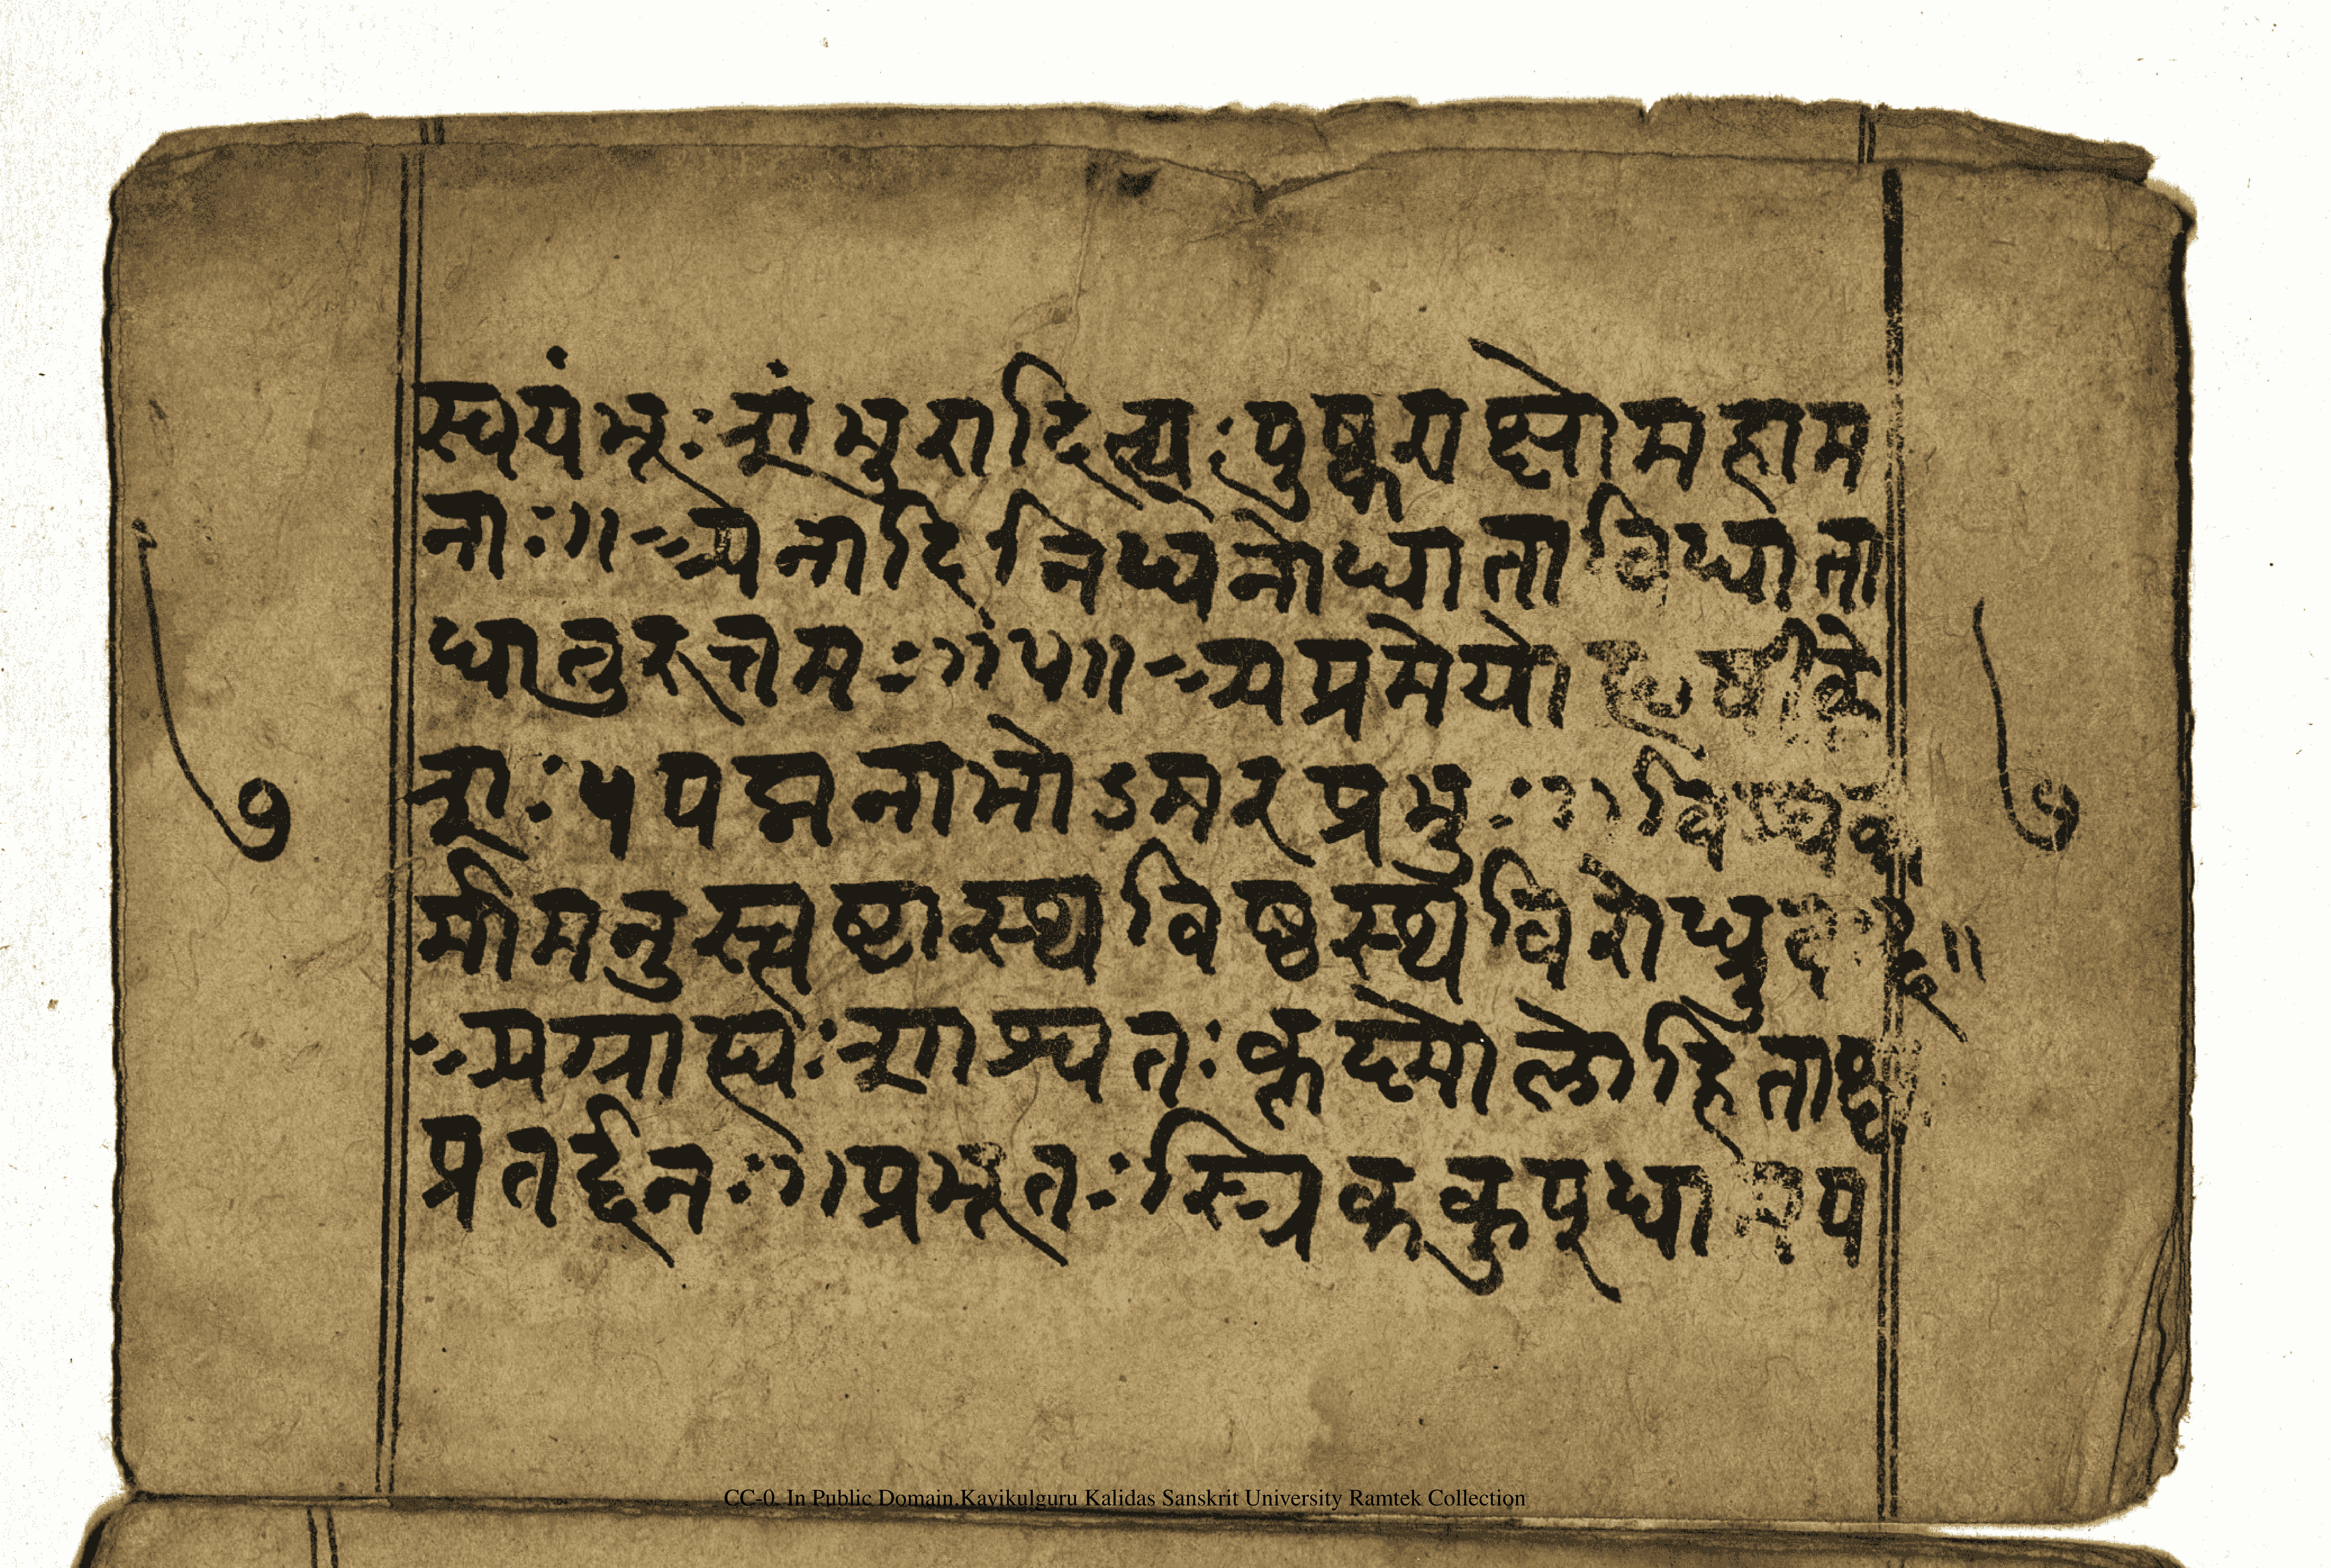 स्वयंभूः शंभुरादित्यः पुष्कराक्षो महाम
नाः ॥ अनादिनिधनो धाता विधाता
धातुरुत्तमः ॥ ५ ॥ अप्रमेयो हृषीके
शः ५ पद्मनाभोऽमरप्रभुः ॥ विश्वक
र्मा मनुस्त्वष्टा स्थविष्ठ स्थविरो ध्रुवः ६ ॥
अग्राह्यः शाश्वतः कृष्मो लोहिताक्ष
प्रतर्द्दनः ॥ प्रभूतः स्त्रिककुप्धाम प
७
७
CC-0. In Public Domain.Kavikulguru Kalidas Sanskrit University Ramtek Collection